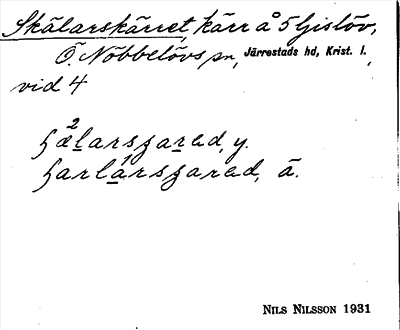 Skälarskärret, kärr å 5 Gislöv,
Ö. Nöbbelövs sn, Järrestads hd, Krist. l.,
vid 4
y.
ä.
NILS NILSSON 1931